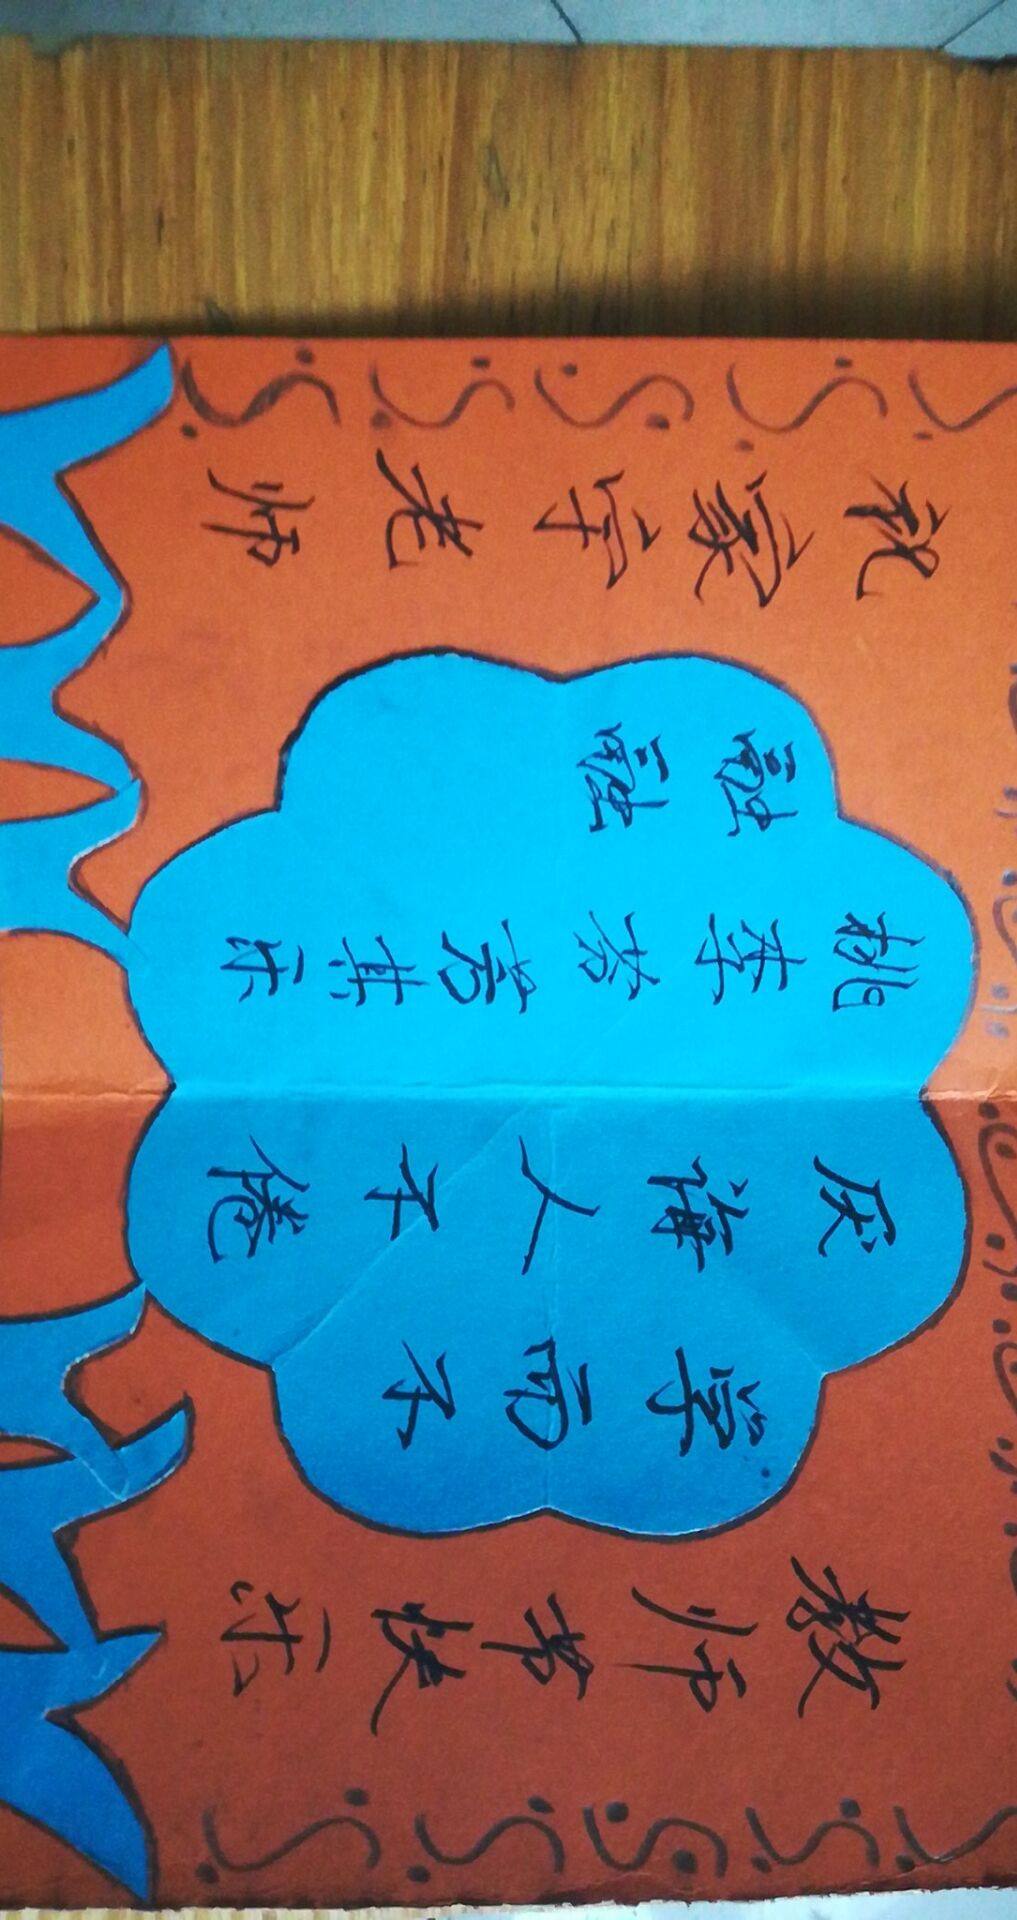 教师节快乐
学而不
厌诲人不倦
桃李芬芳其乐
融融
祝家宇老师